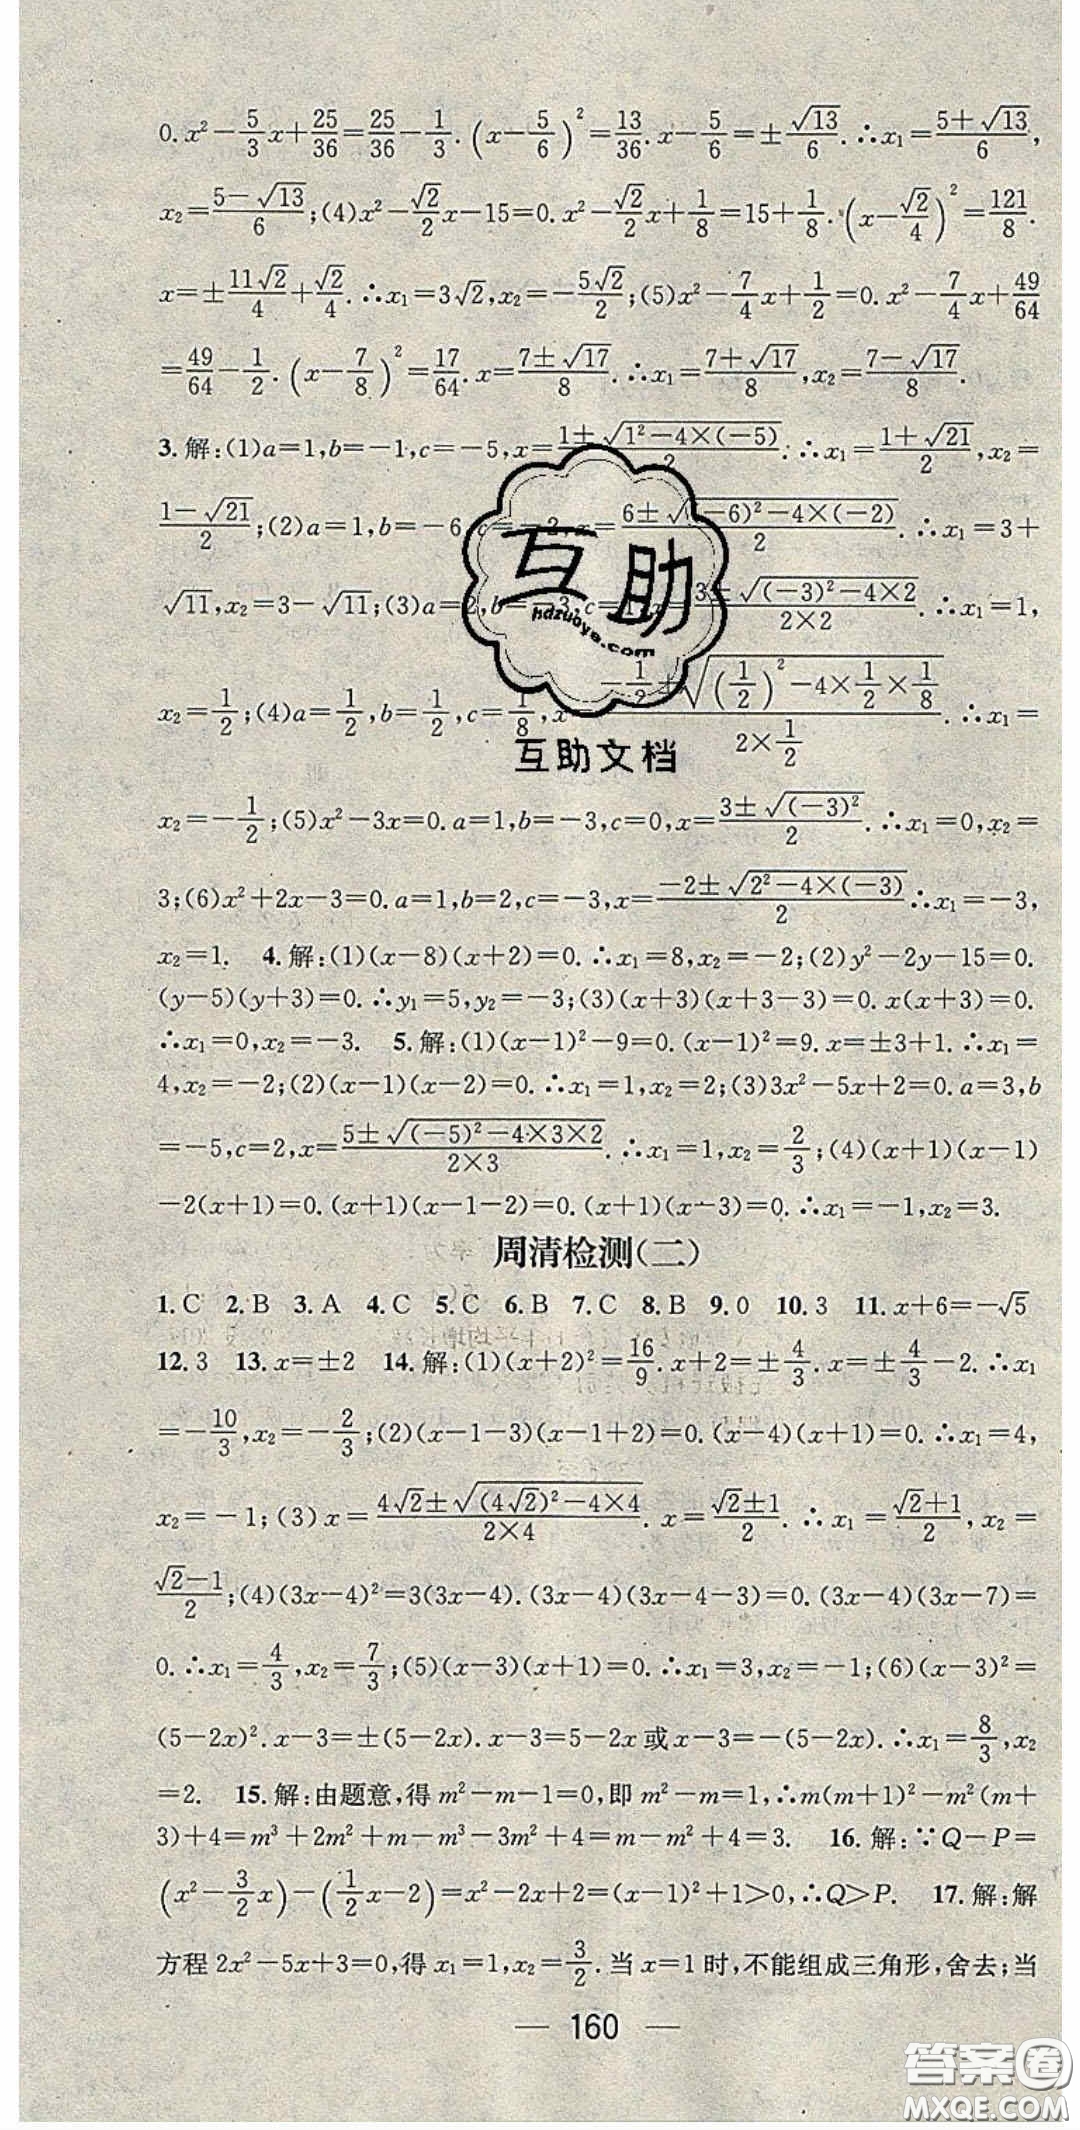 0. x² − 5/3 x + 25/36 = 25/36 − 1/3. (x − 5/6)² = 13/36. x − 5/6 = ± √13/6. ∴x₁ = (5+√13)/6,
x₂ = (5−√13)/6; (4)x² − √2/2 x − 15 = 0. x² − √2/2 x + 1/8 = 15 + 1/8. (x − √2/4)² = 121/8.
x = ± 11√2/4 + √2/4. ∴x₁ = 3√2, x₂ = − 5√2/2; (5)x² − 7/4 x + 1/2 = 0. x² − 7/4 x + 49/64
= 49/64 − 1/2. (x − 7/8)² = 17/64. x = (7±√17)/8. ∴x₁ = (7+√17)/8, x₂ = (7−√17)/8.
3. 解:(1)a=1,b=−1,c=−5,x= (1±√(1²−4×(−5)))/2. ∴x₁ = (1+√21)/2, x₂ =
(1−√21)/2; (2)a=1,b=−6,c=−2,x= (6±√((−6)²−4×(−2)))/2. ∴x₁=3+
√11,x₂=3−√11;(3)a=2,b=−3,c=1,x= (3±√((−3)²−4×2))/(2×2). ∴x₁=1,
x₂ = 1/2; (4)a = 1/2, b = 1/2, c = 1/8, x = (−1/2 ± √((1/2)² − 4×1/2×1/8))/(2×1/2). ∴x₁ =
x₂ = − 1/2; (5)x²−3x=0. a=1,b=−3,c=0,x= (3±√((−3)²))/2. ∴x₁=0,x₂=
3;(6)x²+2x−3=0. a=1,b=2,c=−3,x= (−2±√(2²−4×(−3)))/2 ∴x₁=−3,
x₂=1. 4. 解:(1)(x−8)(x+2)=0. ∴x₁=8,x₂=−2;(2)y²−2y−15=0.
(y−5)(y+3)=0. ∴y₁=5,y₂=−3;(3)(x+3)(x+3−3)=0. x(x+3)=0.
∴x₁=0,x₂=−3. 5. 解:(1)(x−1)²−9=0. (x−1)²=9. x=±3+1. ∴x₁=
4,x₂=−2;(2)(x−1)(x−2)=0. ∴x₁=1,x₂=2;(3)3x²−5x+2=0. a=3,b
=−5,c=2,x= (5±√((−5)²−4×3×2))/(2×3). ∴x₁=1,x₂= 2/3; (4)(x+1)(x−1)
−2(x+1)=0. (x+1)(x−1−2)=0. (x+1)(x−3)=0. ∴x₁=−1,x₂=3.
周清检测(二)
1. C 2. B 3. A 4. C 5. C 6. B 7. C 8. B 9. 0 10. 3 11. x+6=−√5
12. 3 13. x=±2 14. 解:(1)(x+2)² = 16/9. x+2=± 4/3. x=± 4/3 −2. ∴x₁
=− 10/3, x₂=− 2/3; (2)(x−1−3)(x−1+2)=0. (x−4)(x+1)=0. ∴x₁=4,
x₂=−1;(3)x= (4√2±√((4√2)²−4×4))/(2×4). x= (√2±1)/2. ∴x₁= (√2+1)/2, x₂=
(√2−1)/2; (4)(3x−4)²=3(3x−4). (3x−4)(3x−4−3)=0. (3x−4)(3x−7)=
0. ∴x₁= 4/3, x₂= 7/3; (5)(x−3)(x+1)=0. ∴x₁=3,x₂=−1;(6)(x−3)²=
(5−2x)². x−3=±(5−2x). x−3=5−2x或x−3=−(5−2x). ∴x₁= 8/3, x₂
=2. 15. 解:由题意,得m²−m−1=0,即m²−m=1,∴m(m+1)²−m²(m+
3)+4=m³+2m²+m−m³−3m²+4=m−m²+4=3. 16. 解:∵Q−P=
(x²− 3/2 x)−( 1/2 x−2)=x²−2x+2=(x−1)²+1>0,∴Q>P. 17. 解:解
方程2x²−5x+3=0,得x₁=1,x₂= 3/2. 当x=1时,不能组成三角形,舍去;当
— 160 —
互助
hdzuoye.com
互助文档
答案圈
MXQE.COM